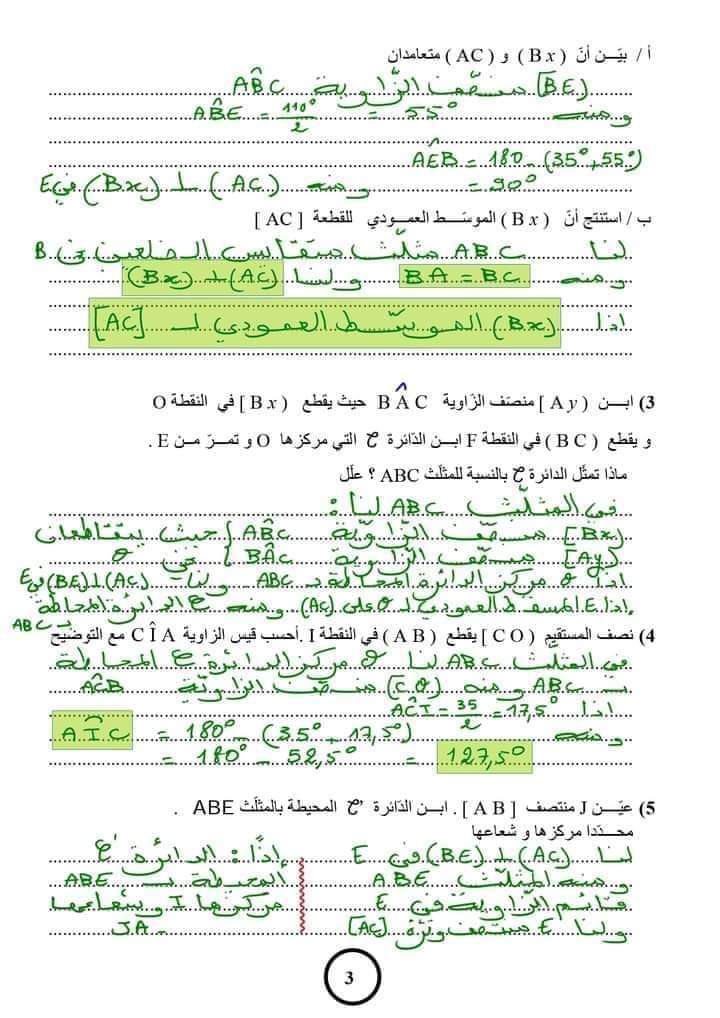 أ / بيّـــن أنّ ( B x ) و ( AC ) متعامدان
[BE) منصّف الزّاوية AB̂C
ومنه AB̂E = 110°/2 = 55°
AÊB = 180 - (35° + 55°)
= 90° ومنه (AC) ⊥ (Bx) في E
ب / استنتج أنّ ( B x ) الموسّـــط العمـــودي للقطعة [ AC ]
لنا ABC مثلّث متقايس الضلعين في B
ومنه BA = BC ولنا (AC) ⊥ (Bx)
إذا (Bx) الموسّط العمودي لـ [AC]
3) ابـــن [ A y ) منصّف الزّاوية B Â C حيث يقطع [ B x ) في النقطة O
و يقطع ( B C ) في النقطة F ابـن الدّائرة ℭ التي مركزها O و تمـــرّ مـــن E .
ماذا تمثّل الدائرة ℭ بالنسبة للمثلّث ABC ؟ علّل
في المثلّث ABC لنا :
[Bx) منصّف الزّاوية AB̂C } حيث يتقاطعان
[Ay) منصّف الزّاوية BÂC } في O
إذا O مركز الدائرة المحاطة بـ ABC ولنا (AC) ⊥ (BE) في E
إذا E المسقط العمودي لـ O على (AC) ومنه ℭ الدائرة المحاطة
بـ ABC
4) نصف المستقيم [ C O ) يقطع ( A B ) في النقطة I .أحسب قيس الزاوية C Î A مع التوضيح
في المثلّث ABC لنا O مركز الدائرة ℭ المحاطة
بـ ABC ومنه [CO) منصّف الزاوية AĈB
إذا AĈI = 35/2 = 17,5°
ومنه AÎC = 180° - (35° + 17,5°)
= 180° - 52,5° = 127,5°
5) عيّـــن J منتصف [ A B ] . ابـن الدّائرة ℭ' المحيطة بالمثلّث ABE .
محـدّدا مركزها و شعاعها
لنا (AC) ⊥ (BE) في E
ومنه المثلّث ABE
قائم الزّاوية في E
ولنا E منتصف وترة [AC]
إذًا : الدائرة ℭ'
المحيطة بـ ABE
مركزها I وشعاعها
JA
3